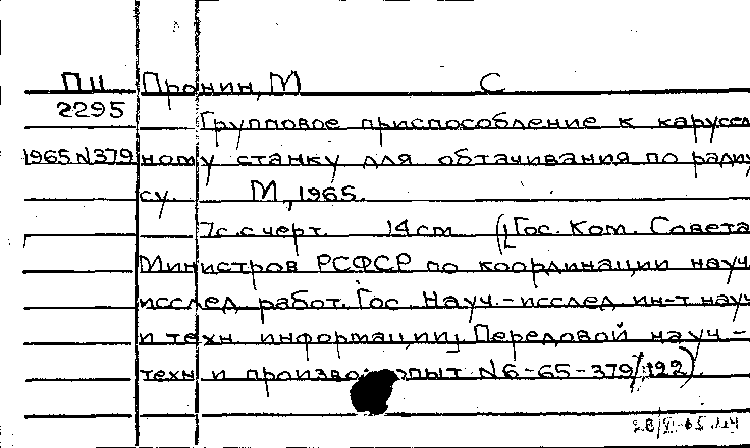 П11 Пронин, М С
2295
Групповое приспособление к карусел
1965 N379 ному станку для обтачивания по радиу
су. М, 1965.
7с. с черт. 14 cm ([Гос. Ком. Совета
Министров РСФСР по координации науч
исслед работ. Гос. Науч.-исслед ин-т науч
и техн. информации] Передовой науч.-
техн и произво опыт N6-65-379/122).